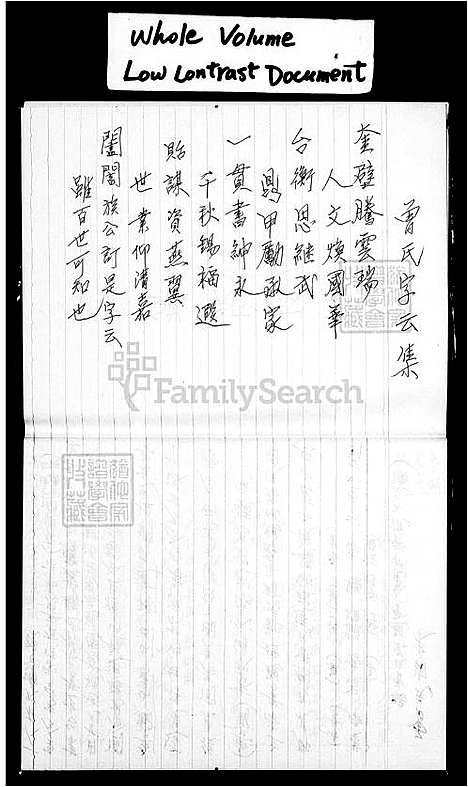 Whole Volume
Low Contrast Document
曾氏字云集
奎璧騰雲瑞
人文煥國華
台衡思繼武
鼎甲勵承家
一貫書紳永
千秋錫福遐
貽謀資燕翼
世業仰清嘉
闔閤族公訂是字云
雖百世可知也
FamilySearch